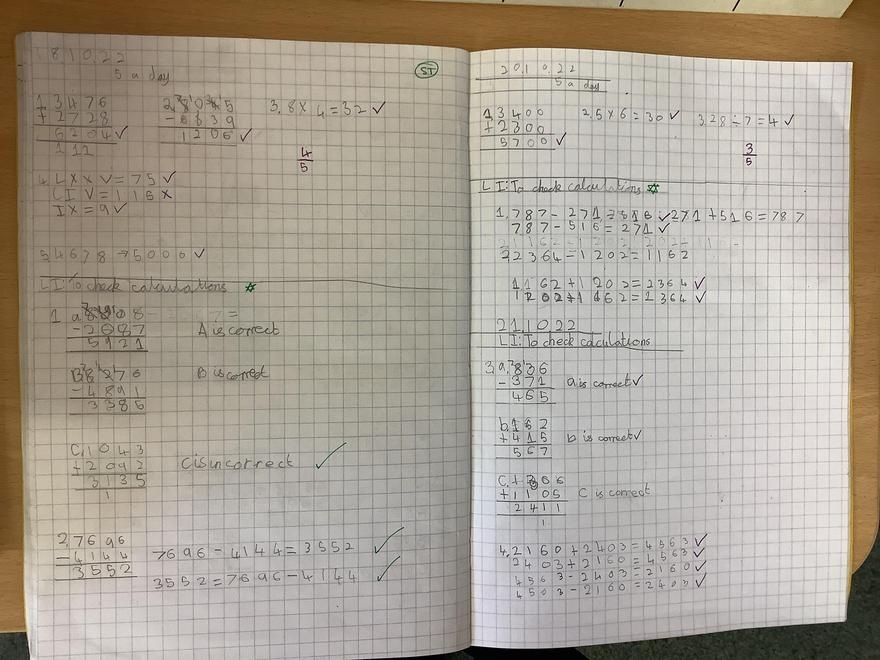 18.10.22
5 a day
ST
1, 3476
+2728
6204 ✓
112
2, 8045
-6839
1206 ✓
3, 8 x 4 = 32 ✓
4/5
4, L X X V = 75 ✓
L I V = 116 x
I X = 9 ✓
5, 4678 → 5000 ✓
L I: To check calculations
1 a 8608
-2687
5921
A is correct
B, 8276
-4891
3385
B is correct
C, 1043
+2092
3135
1
C is incorrect ✓
2, 7696
-4144
3552
7696 - 4144 = 3552 ✓
3552 = 7696 - 4144 ✓
20.10.22
5 a day
1, 3400
+2300
5700 ✓
2, 5 x 6 = 30 ✓
3, 28 ÷ 7 = 4 ✓
3/5
L I: To check calculations
1, 787 - 271 = 516 ✓ 271 + 516 = 787
787 - 516 = 271 ✓
2 2364 = 1202 = 1162
1162 + 1202 = 2364 ✓
1202 + 1162 = 2364 ✓
21.10.22
L I: To check calculations
3, a, 836
-371
465
a is correct ✓
b, 152
+415
567
b is correct ✓
C, 1306
+1105
2411
1
C is correct
4, 2160 + 2403 = 4563 ✓
2403 + 2160 = 4563 ✓
4563 - 2403 = 2160 ✓
4563 - 2160 = 2403 ✓